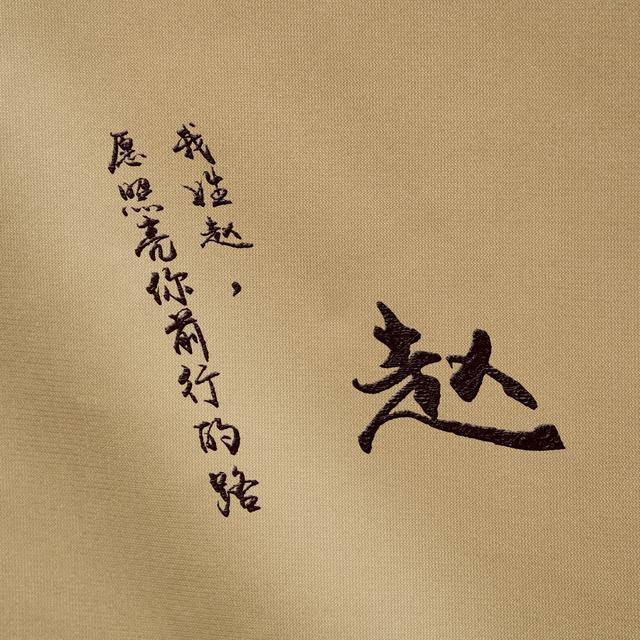 赵
我姓赵，
愿照亮你前行的路